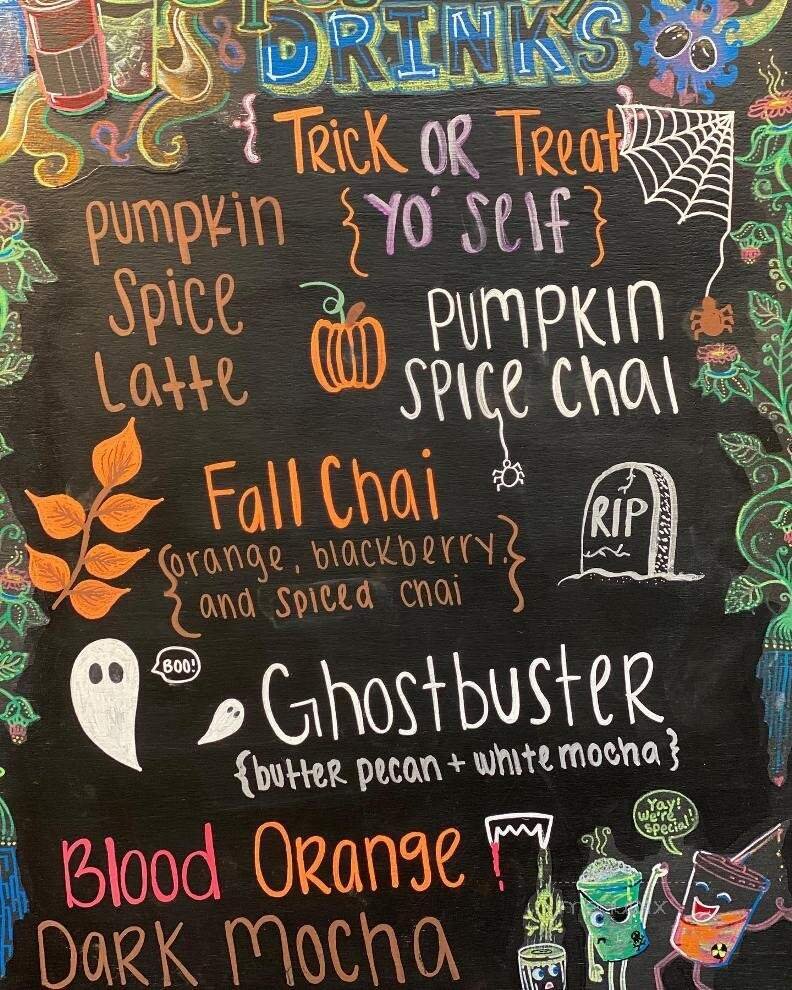 DRINKS
{ Trick OR Treat
{ Yo' Self }
Pumpkin
Spice
Latte
Pumpkin
Spice Chai
Fall Chai
{orange, blackberry,
and spiced chai}
RIP
BOO!
Ghostbuster
{butter pecan + white mocha}
Blood Orange
Dark Mocha
Yay!
We're
special!